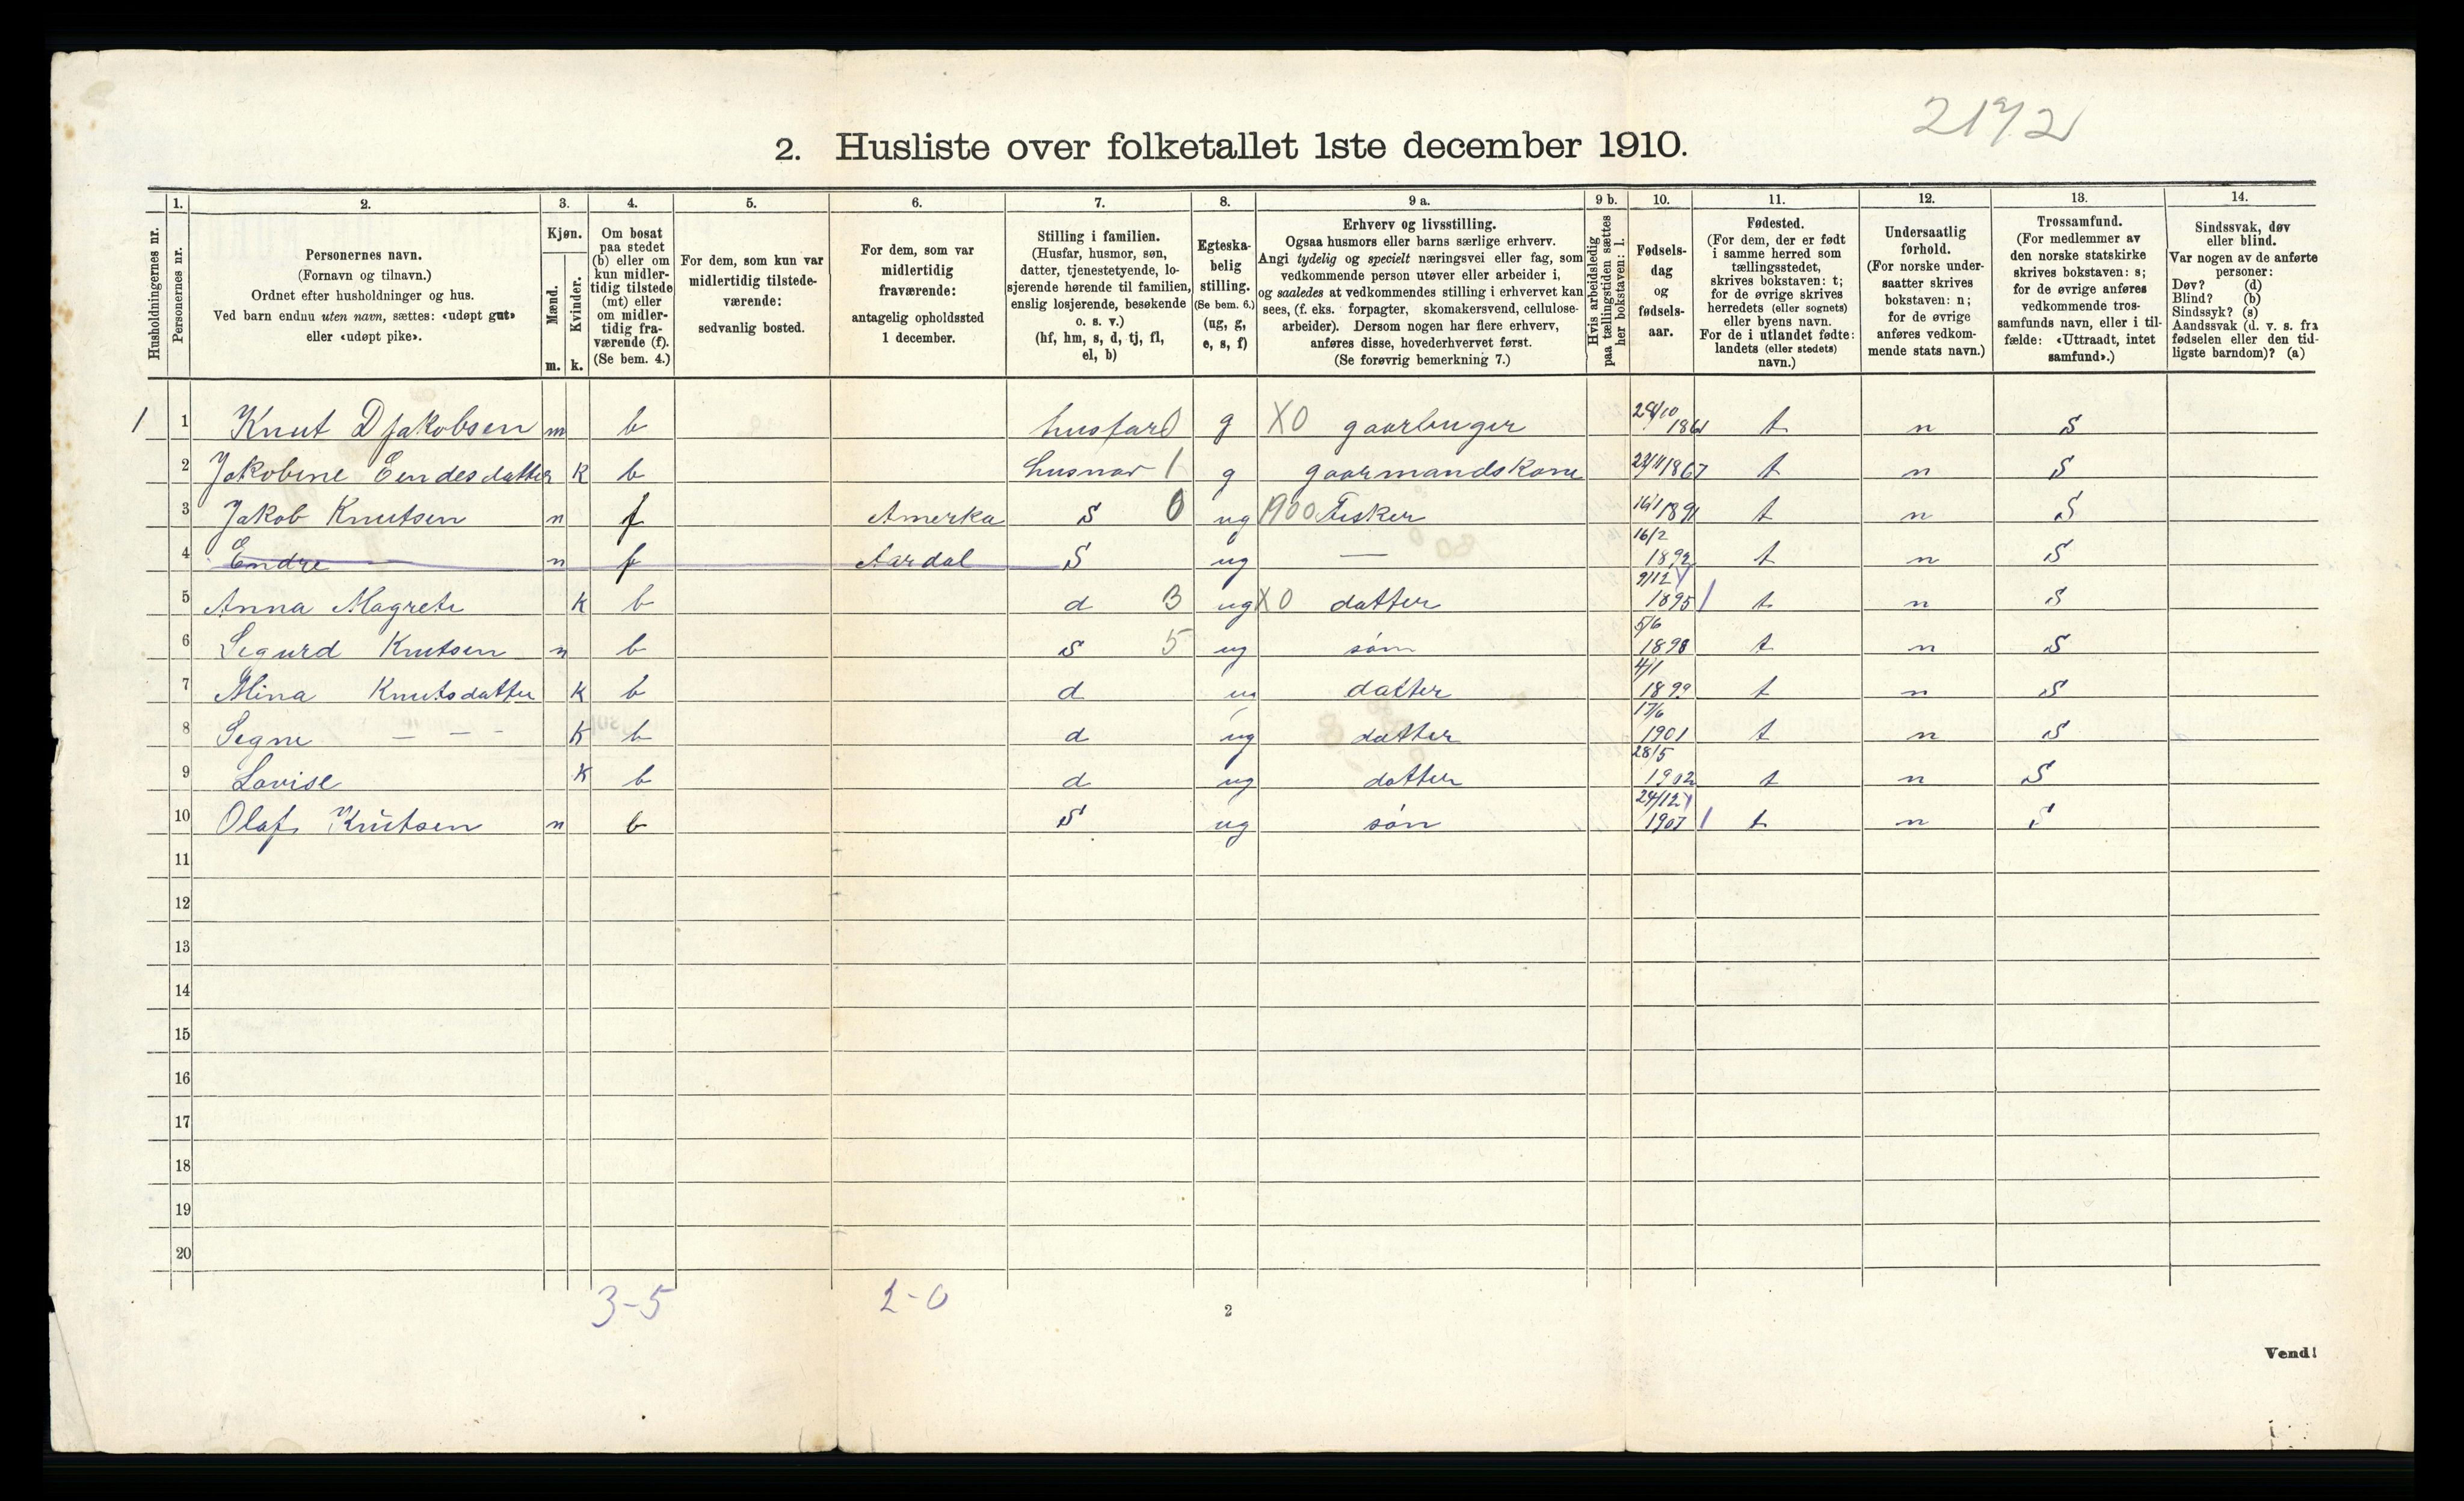 2172
2. Husliste over folketallet 1ste december 1910.
Husholdningernes nr.
1.
Personernes nr.
2.
Personernes navn.
(Fornavn og tilnavn.)
Ordnet efter husholdninger og hus.
Ved barn endnu uten navn, sættes: «udøpt gut»
eller «udøpt pike».
3.
Kjøn.
Mænd.
Kvinder.
m. k.
4.
Om bosat
paa stedet
(b) eller om
kun midler-
tidig tilstede
(mt) eller
om midler-
tidig fra-
værende (f).
(Se bem. 4.)
5.
For dem, som kun var
midlertidig tilstede-
værende:
sedvanlig bosted.
6.
For dem, som var
midlertidig
fraværende:
antagelig opholdssted
1 december.
7.
Stilling i familien.
(Husfar, husmor, søn,
datter, tjenestetyende, lo-
sjerende hørende til familien,
enslig losjerende, besøkende
o. s. v.)
(hf, hm, s, d, tj, fl,
el, b)
8.
Egteska-
belig
stilling.
(Se bem. 6.)
(ug, g,
e, s, f)
9 a.
Erhverv og livsstilling.
Ogsaa husmors eller barns særlige erhverv.
Angi tydelig og specielt næringsvei eller fag, som
vedkommende person utøver eller arbeider i,
og saaledes at vedkommendes stilling i erhvervet kan
sees, (f. eks. forpagter, skomakersvend, cellulose-
arbeider). Dersom nogen har flere erhverv,
anføres disse, hovederhvervet først.
(Se forøvrig bemerkning 7.)
9 b.
Hvis arbeidsledig
paa tællingstiden sættes
her bokstaven: l.
10.
Fødsels-
dag
og
fødsels-
aar.
11.
Fødested.
(For dem, der er født
i samme herred som
tællingsstedet,
skrives bokstaven: t;
for de øvrige skrives
herredets (eller sognets)
eller byens navn.
For de i utlandet fødte:
landets (eller stedets)
navn.)
12.
Undersaatlig
forhold.
(For norske under-
saatter skrives
bokstaven: n;
for de øvrige
anføres vedkom-
mende stats navn.)
13.
Trossamfund.
(For medlemmer av
den norske statskirke
skrives bokstaven: s;
for de øvrige anføres
vedkommende tros-
samfunds navn, eller i til-
fælde: «Uttraadt, intet
samfund».)
14.
Sindssvak, døv
eller blind.
Var nogen av de anførte
personer:
Døv? (d)
Blind? (b)
Sindssyk? (s)
Aandssvak (d. v. s. fra
fødselen eller den tid-
ligste barndom)? (a)
1 1 Knut D Jakobsen m b husfar 0 g X0 gaarbuger 1861 t n s
2 Jakobine Eendesdatter k b husmor 1 g gaarmandskone 1867 t n s
3 Jakob Knutsen n f Amerka s 0 ug 1900 Fisker 16/1 1891 t n s
4 Endre — n f Aardal s ug — 16/2 1892 t n s
5 Anna Magrete k b d 3 ug X0 datter 9/12 1895 t n s
6 Segurd Knutsen n b s 5 ug søm 5/6 1898 t n s
7 Mina Knutsdatter k b d ug datter 4/1 1899 t n s
8 Segne — — - k b d ug datter 17/6 1901 t n s
9 Lovise k b d ug datter 28/5 1902 t n s
10 Olaf Knutsen n b s ug søn 24/12 1907 t n s
11
12
13
14
15
16
17
18
19
20
3-5 2-0
2
Vend!